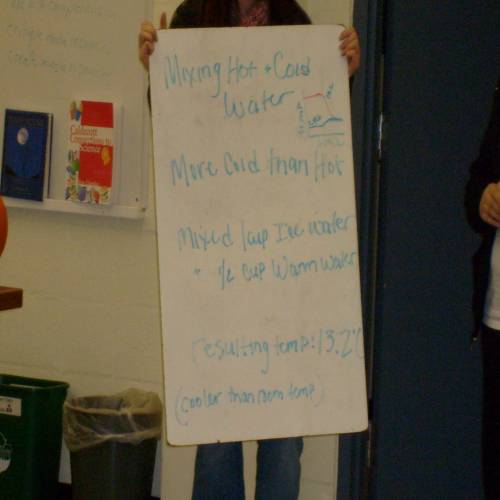 Mixing Hot + Cold
Water
More Cold than Hot
Mixed 1 cup Ice water
+ 1/2 cup Warm water
resulting temp: 13.2°C
(cooler than room temp)
Caldecott
Connections to
Science